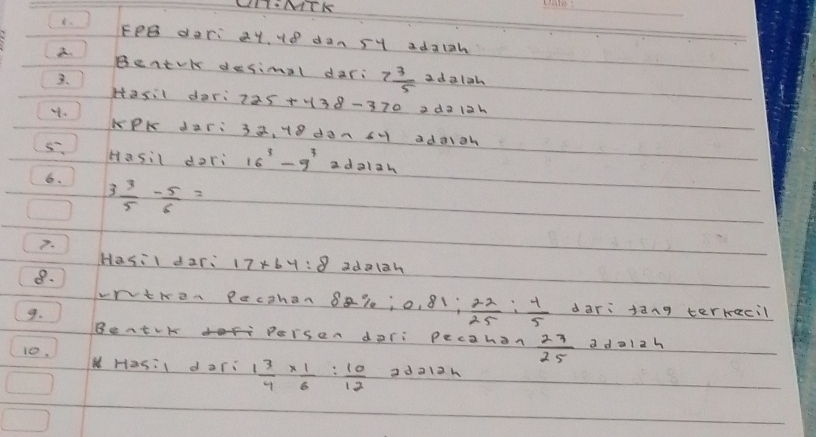 UH: MTK
Date:
1. FPB dari 24, 48 dan 54 adalah
2. Bentuk desimal dari 7 3/5 adalah
3. Hasil dari 725 + 438 - 320 adalah
4. KPK dari 32, 48 dan 64 adalah
5. Hasil dari 16³ - 9³ adalah
6. 3 3/5 - 5/6 =
7. Hasil dari 17 + 64 : 8 adalah
8. urutkan Pecahan 82% ; 0,81 ; 22/25 ; 4/5 dari yang terkecil
9. Bentuk Persen dari Pecahan 23/25 adalah
10. Hasil dari 1 3/4 × 1/6 : 10/12 adalah